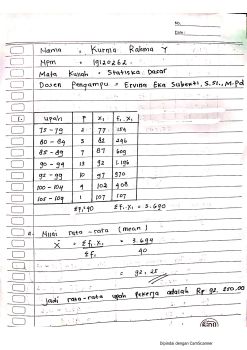 No.
Date:
Nama : Kurnia Rahma Y
Npm : 19120262
Mata Kuliah : Statiska Dasar
Dosen Pengampu : Ervina Eka Subekti, S.Si., M.Pd
1.
upah F Xi Fi.Xi
75-79 2 77 154
80-84 3 82 246
85-89 7 87 609
90-94 13 92 1.196
95-99 10 97 970
100-104 4 102 408
105-109 1 107 107
Σf=40 Σfi.Xi = 3.690
a. Nilai rata-rata (mean)
X̄ = Σfi.Xi = 3.690
Σfi 40
= 92,25
Jadi rata-rata upah pekerja adalah Rp 92.250.00
Dipindai dengan CamScanner